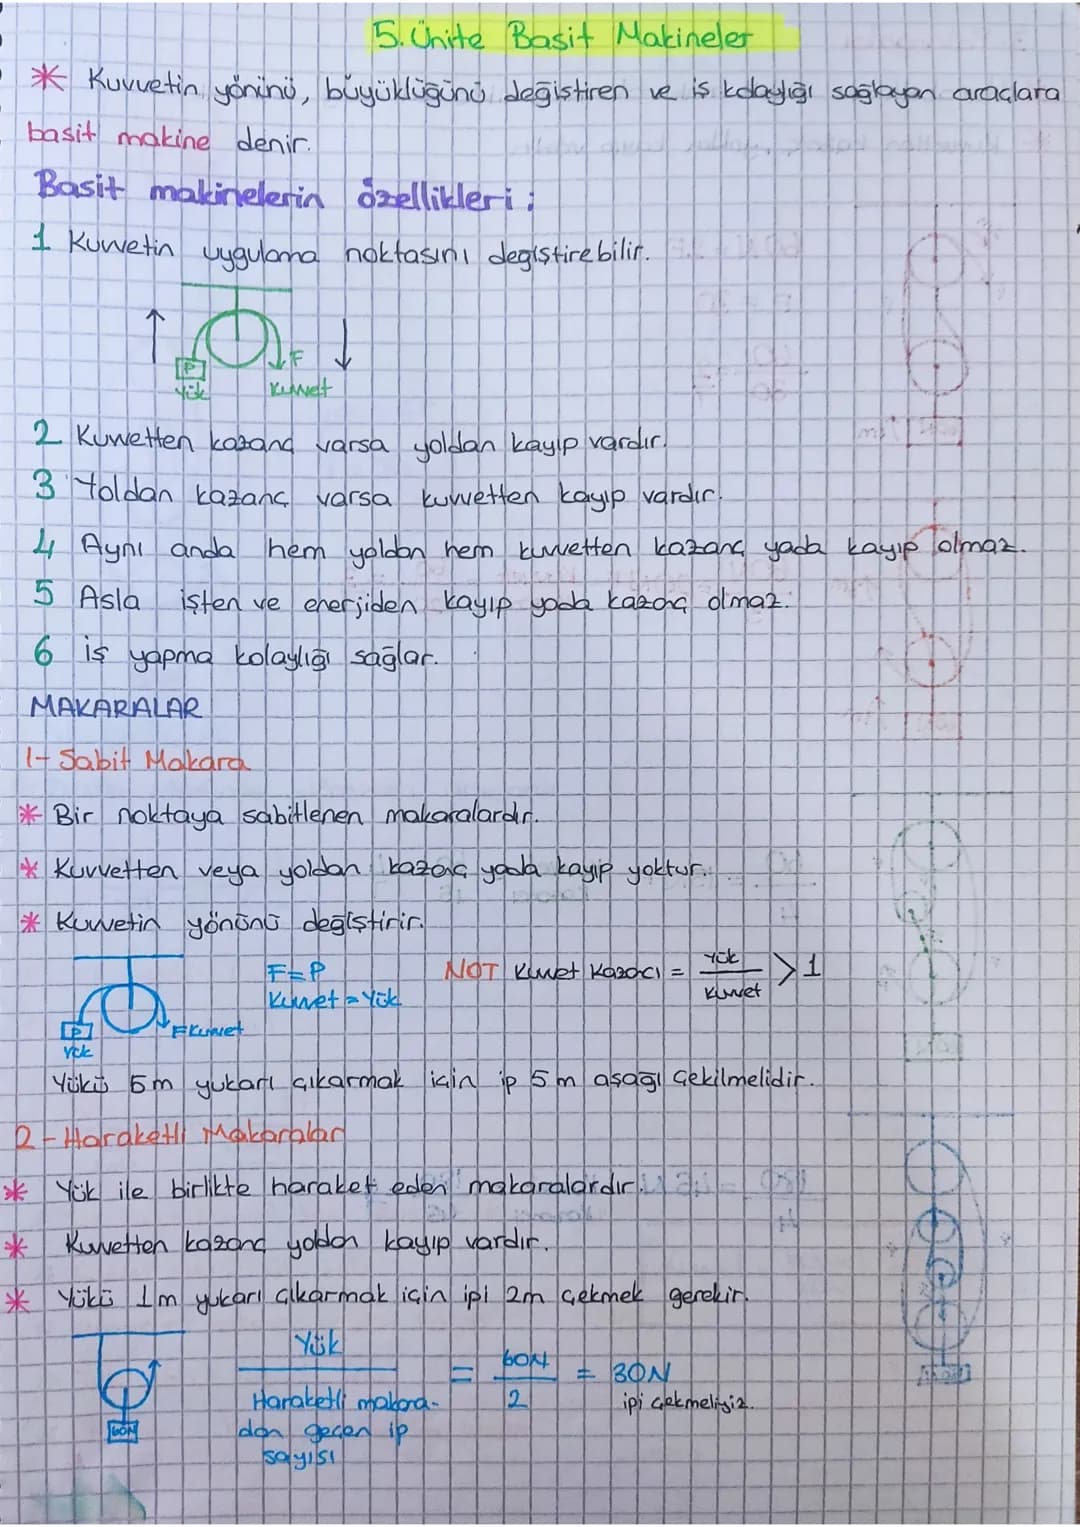 5. Ünite Basit Makineler
* Kuvvetin yönünü, büyüklüğünü değiştiren ve iş kolaylığı sağlayan araçlara
basit makine denir.
Basit makinelerin özellikleri ;
1 Kuvvetin uygulama noktasını değiştirebilir.
P
F
Yük
Kuvvet
2 Kuvvetten kazanç varsa yoldan kayıp vardır.
3 Yoldan kazanç varsa kuvvetten kayıp vardır.
4 Aynı anda hem yoldan hem kuvvetten kazanç yada kayıp olmaz.
5 Asla işten ve enerjiden kayıp yada kazanç olmaz.
6 iş yapma kolaylığı sağlar.
MAKARALAR
1- Sabit Makara
* Bir noktaya sabitlenen makaralardır.
* Kuvvetten veya yoldan kazanç yada kayıp yoktur.
* Kuvvetin yönünü değiştirir.
F=P
Kuvvet = Yük
NOT Kuvvet Kazancı = Yük / Kuvvet > 1
P
Yük
F Kuvvet
Yükü 5m yukarı çıkarmak için ip 5m aşağı çekilmelidir.
2- Haraketli Makaralar
* Yük ile birlikte haraket eden makaralardır.
* Kuvvetten kazanç yoldan kayıp vardır.
* Yükü 1m yukarı çıkarmak için ipi 2m çekmek gerekir.
Yük
Haraketli makara-
dan geçen ip
sayısı
= 60N / 2 = 30N
ipi çekmeliyiz.
60N